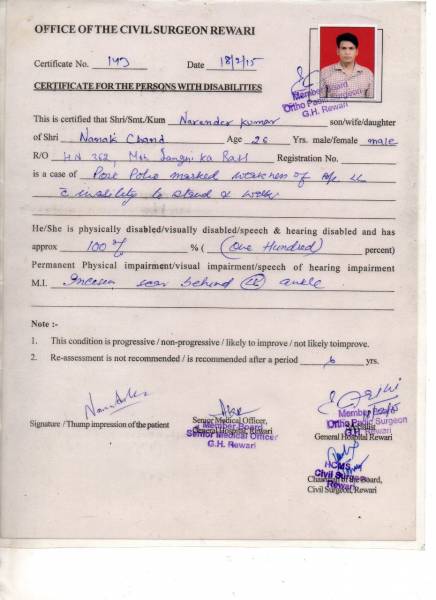 OFFICE OF THE CIVIL SURGEON REWARI
Certificate No. 143 Date 18/2/15
CERTIFICATE FOR THE PERSONS WITH DISABILITIES
Member Board
Ortho Paed Surgeon
G.H. Rewari
This is certified that Shri/Smt./Kum Narender Kumar son/wife/daughter
of Shri Nanak Chand Age 26 Yrs. male/female male
R/O H N 362, Registration No.
is a case of Post Polio marked weakness of LL
inability to stand & walk
He/She is physically disabled/visually disabled/speech & hearing disabled and has
approx 100% % ( One Hundred ) percent)
Permanent Physical impairment/visual impairment/speech of hearing impairment
M.I. scar behind ankle
Note :-
1. This condition is progressive / non-progressive / likely to improve / not likely toimprove.
2. Re-assessment is not recommended / is recommended after a period 6 yrs.
Signature / Thump impression of the patient
Senior Medical Officer,
General Hospital, Rewari
Member Board
Senior Medical Officer
G.H. Rewari
Member Board
Ortho Paed Surgeon
G.H. Rewari
General Hospital Rewari
HCMS
Civil Surgeon
Rewari
Chairman of the Board,
Civil Surgeon, Rewari